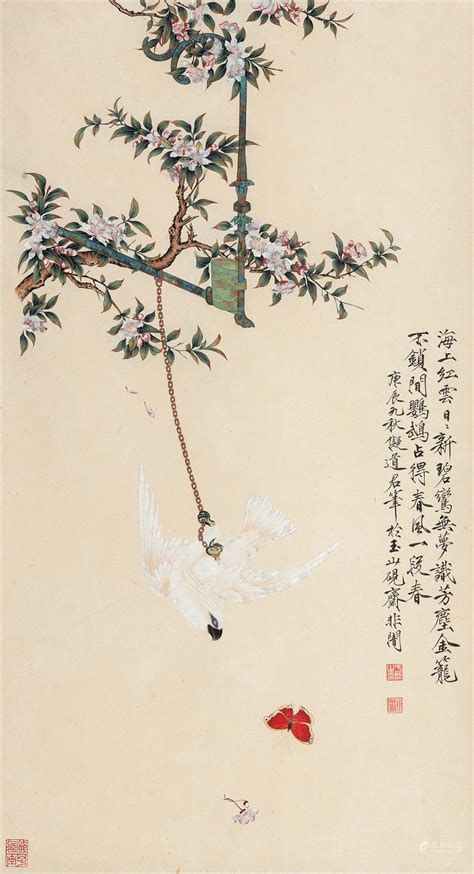 海上紅雲日〻新碧鸞無夢識芳塵金籠
不鎖閒鸚鵡占得春風一段春
庚辰九秋擬道君筆於玉山硯齋非闇